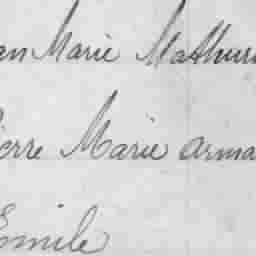 an Marie Mathuri
ierre Marie arma
Emile